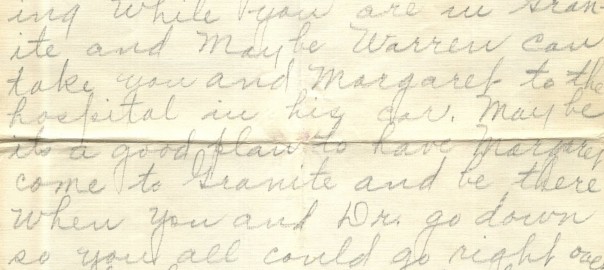 ing While you are in Gran-
ite and Maybe Warren can
take you and Margaret to the
hospital in his car. Maybe
its a good plan to have Margaret
come to Granite and be there
when you and Dr. go down
so you all could go right over